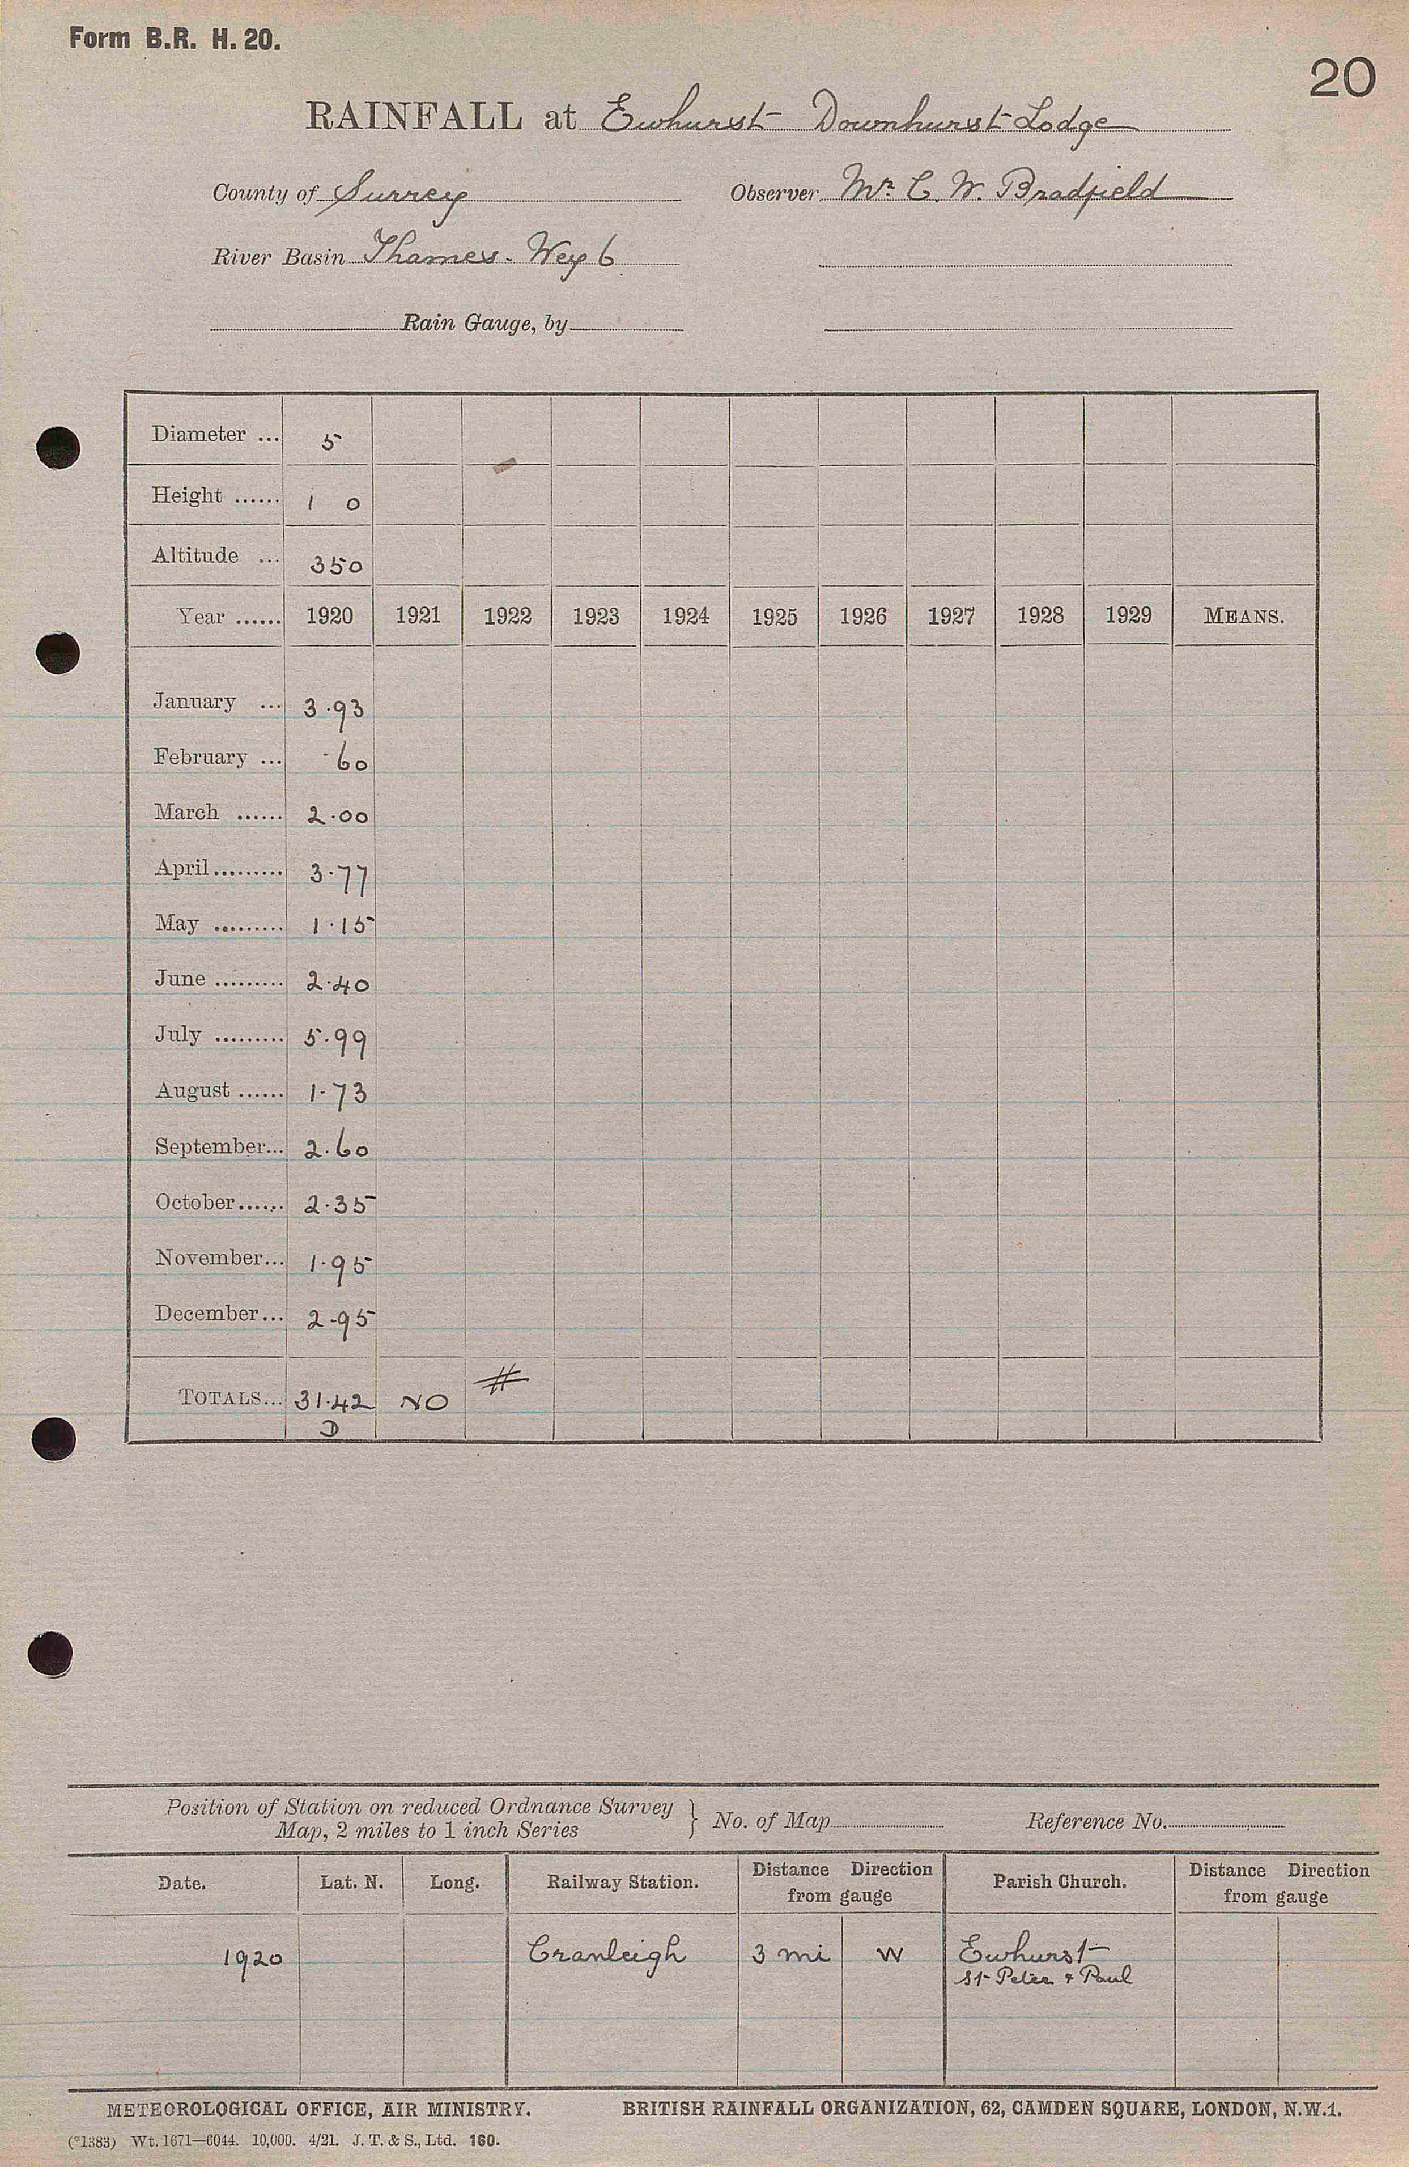 Form B.R. H. 20.
20
RAINFALL at Ewhurst Downhurst Lodge
County of Surrey Observer Mr. C. W. Bradfield
River Basin Thames - Wey 6
Rain Gauge, by
Diameter ... 5
Height ...... 1 0
Altitude ... 350
Year ...... 1920 1921 1922 1923 1924 1925 1926 1927 1928 1929 MEANS.
January ... 3.93
February ... .60
March ...... 2.00
April ......... 3.77
May ......... 1.15
June ......... 2.40
July ......... 5.99
August ...... 1.73
September... 2.60
October ...... 2.35
November... 1.95
December... 2.95
TOTALS... 31.42 NO #
D
Position of Station on reduced Ordnance Survey
Map, 2 miles to 1 inch Series } No. of Map Reference No.
Date. Lat. N. Long. Railway Station. Distance Direction from gauge Parish Church. Distance Direction from gauge
1920 Cranleigh 3 mi W Ewhurst
St Peter & Paul
METEOROLOGICAL OFFICE, AIR MINISTRY. BRITISH RAINFALL ORGANIZATION, 62, CAMDEN SQUARE, LONDON, N.W.1.
(*1383) Wt. 1671—6044. 10,000. 4/21. J. T. & S., Ltd. 160.